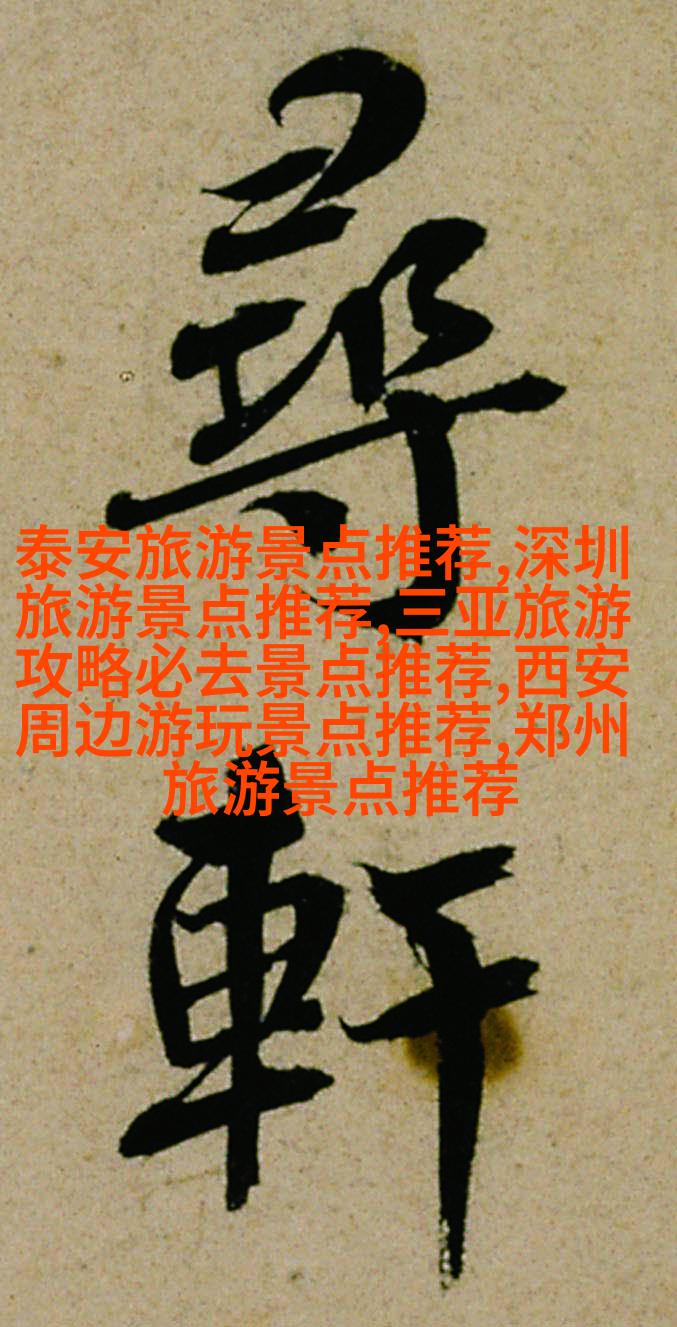 尋
軒
泰安旅游景点推荐,深圳
旅游景点推荐,三亚旅游
攻略必去景点推荐,西安
周边游玩景点推荐,郑州
旅游景点推荐